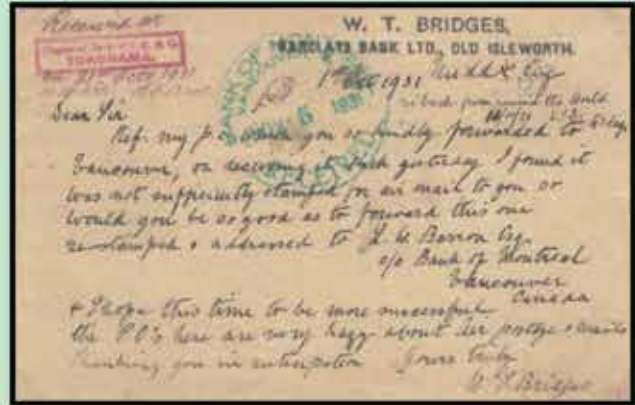 Received at
W. T. BRIDGES,
YOKOHAMA.
BARCLAYS BANK LTD., OLD ISLEWORTH.
21st Oct 1931
1st Oct 1931
BANK OF MONTREAL
VANCOUVER
6 1931
Middx Eng
back from round the World
Dear Sir
Ref. my p.c. which you so kindly forwarded to
Vancouver, on receiving it back yesterday I found it
was not sufficiently stamped for air mail to you so
would you be so good as to forward this one
re-stamped & addressed to W. Barron Esq.
c/o Bank of Montreal
Vancouver
Canada
& I hope this time to be more successful
the P.O's here are very hazy about air postage & mails
Thanking you in anticipation Yours truly
W. T. Bridges